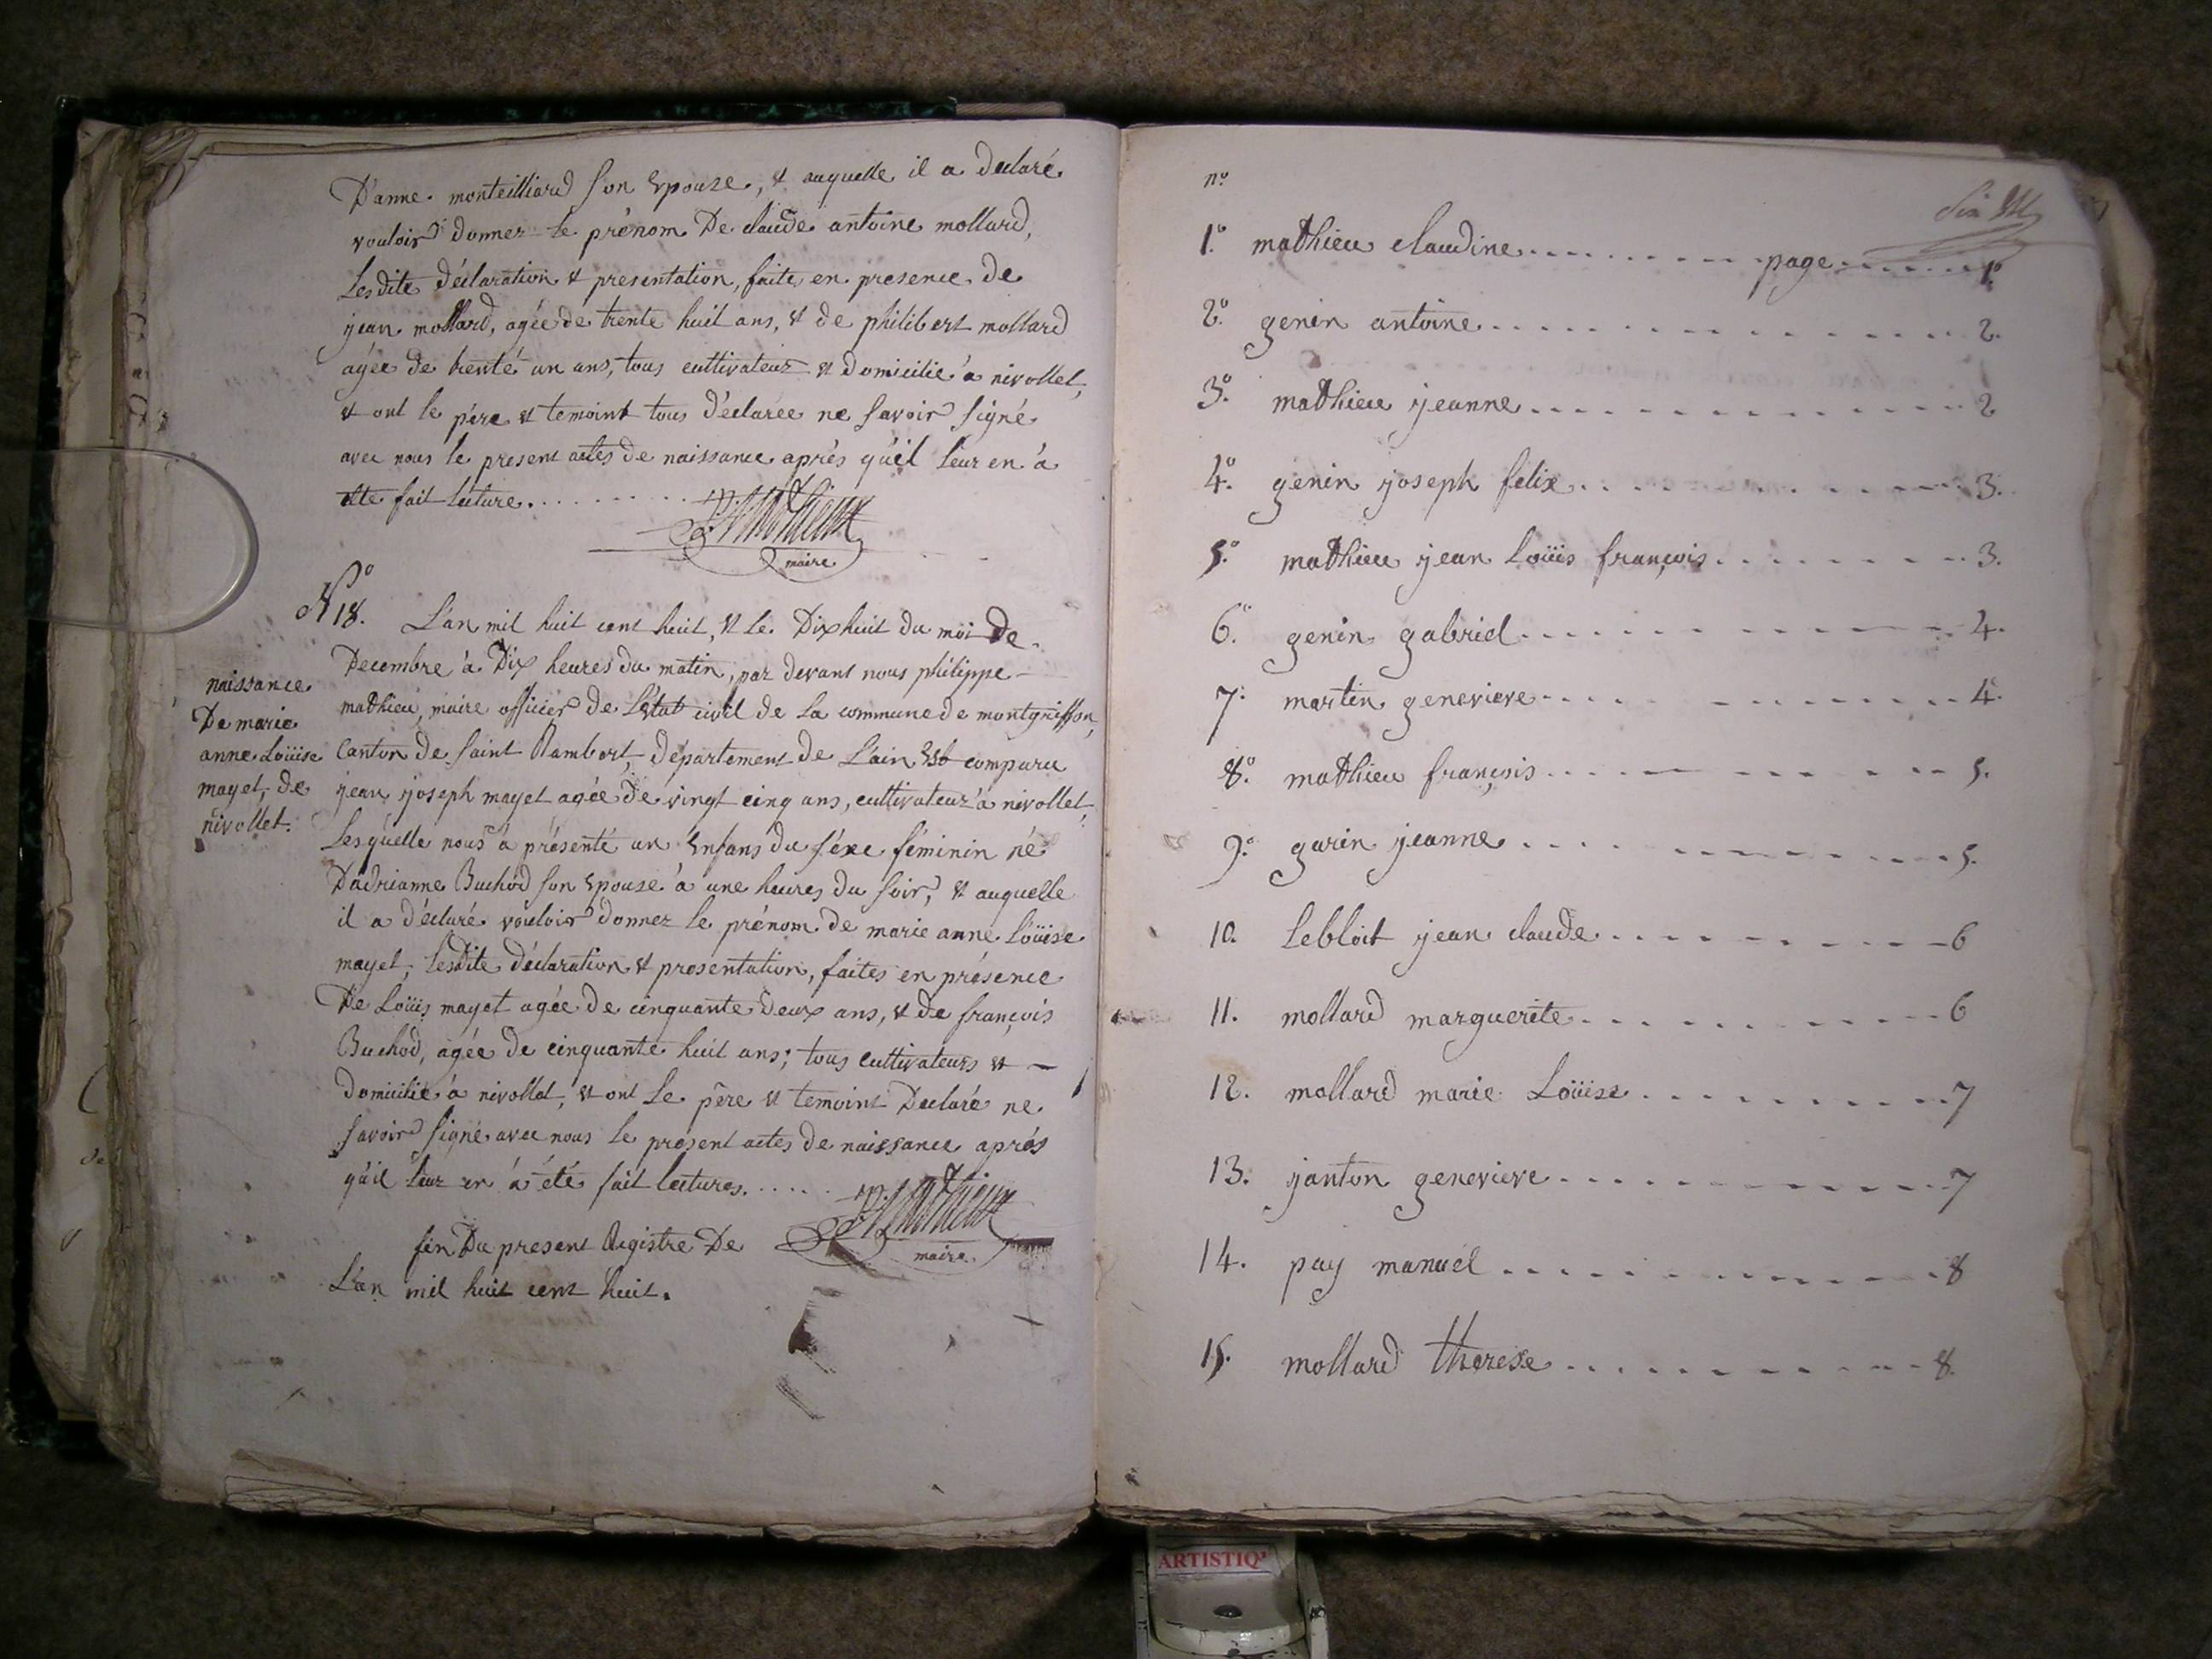 D'anne monteilliard son Epouse, & auquelle il a declaré
vouloir donner le prénom De claude antoine mollard,
Lesdite déclaration & presentation, faite en presence de
jean mollard, agée de trente huit ans, & de philibert mollard
agée de trente un ans, tous cultivateur & domicilié à nivollet,
& ont le père & temoint tous déclarée ne savoir signé
avec nous le present actes de naissance après qu'il leur en à
été fait lecture.
maire
N° 18. L'an mil huit cent huit, & le Dix huit du moi de
Decembre à Dix heures du matin, par devant nous philippe
mathieu, maire officier de L'Etat civil de la commune de montgriffon,
Canton de saint Rambert, département de L'ain Est comparu
jean joseph mayet agée de vingt cinq ans, cultivateur à nivollet,
Lesquelle nous à présenté un Enfans du séxe féminin né
D'adrianne Buchod son Epouse à une heures du soir, & auquelle
il a déclaré vouloir donner le prénom de marie anne Loüise
mayet, Lesdite déclaration & presentation, faites en présence
De Loüis mayet agée de cinquante deux ans, & de françois
Buchod, agée de cinquante huit ans; tous cultivateurs &
domicilié à nivollet, & ont Le père & temoint Declaré ne
savoir signé avec nous le présent actes de naissance après
qu'il leur en à été fait lectures.
maire
naissance
De marie
anne Loüise
mayet, de
nivollet.
fin Du present Registre De
L'an mil huit cent huit.
n°
1° mathieu claudine page 1°
2° genin antoine 2.
3° mathieu jeanne 2
4° genin joseph felix 3.
5° mathieu jean Loüis françois 3.
6° genin gabriel 4.
7° martin genevieve 4.
8° mathieu françois 5.
9° garin jeanne 5.
10. Lebloit jean claude 6
11. mollard marguerite 6
12. mollard marie Loüise 7
13. janton genevieve 7
14. pay manuel 8
15. mollard therese 8.
ARTISTIQ'